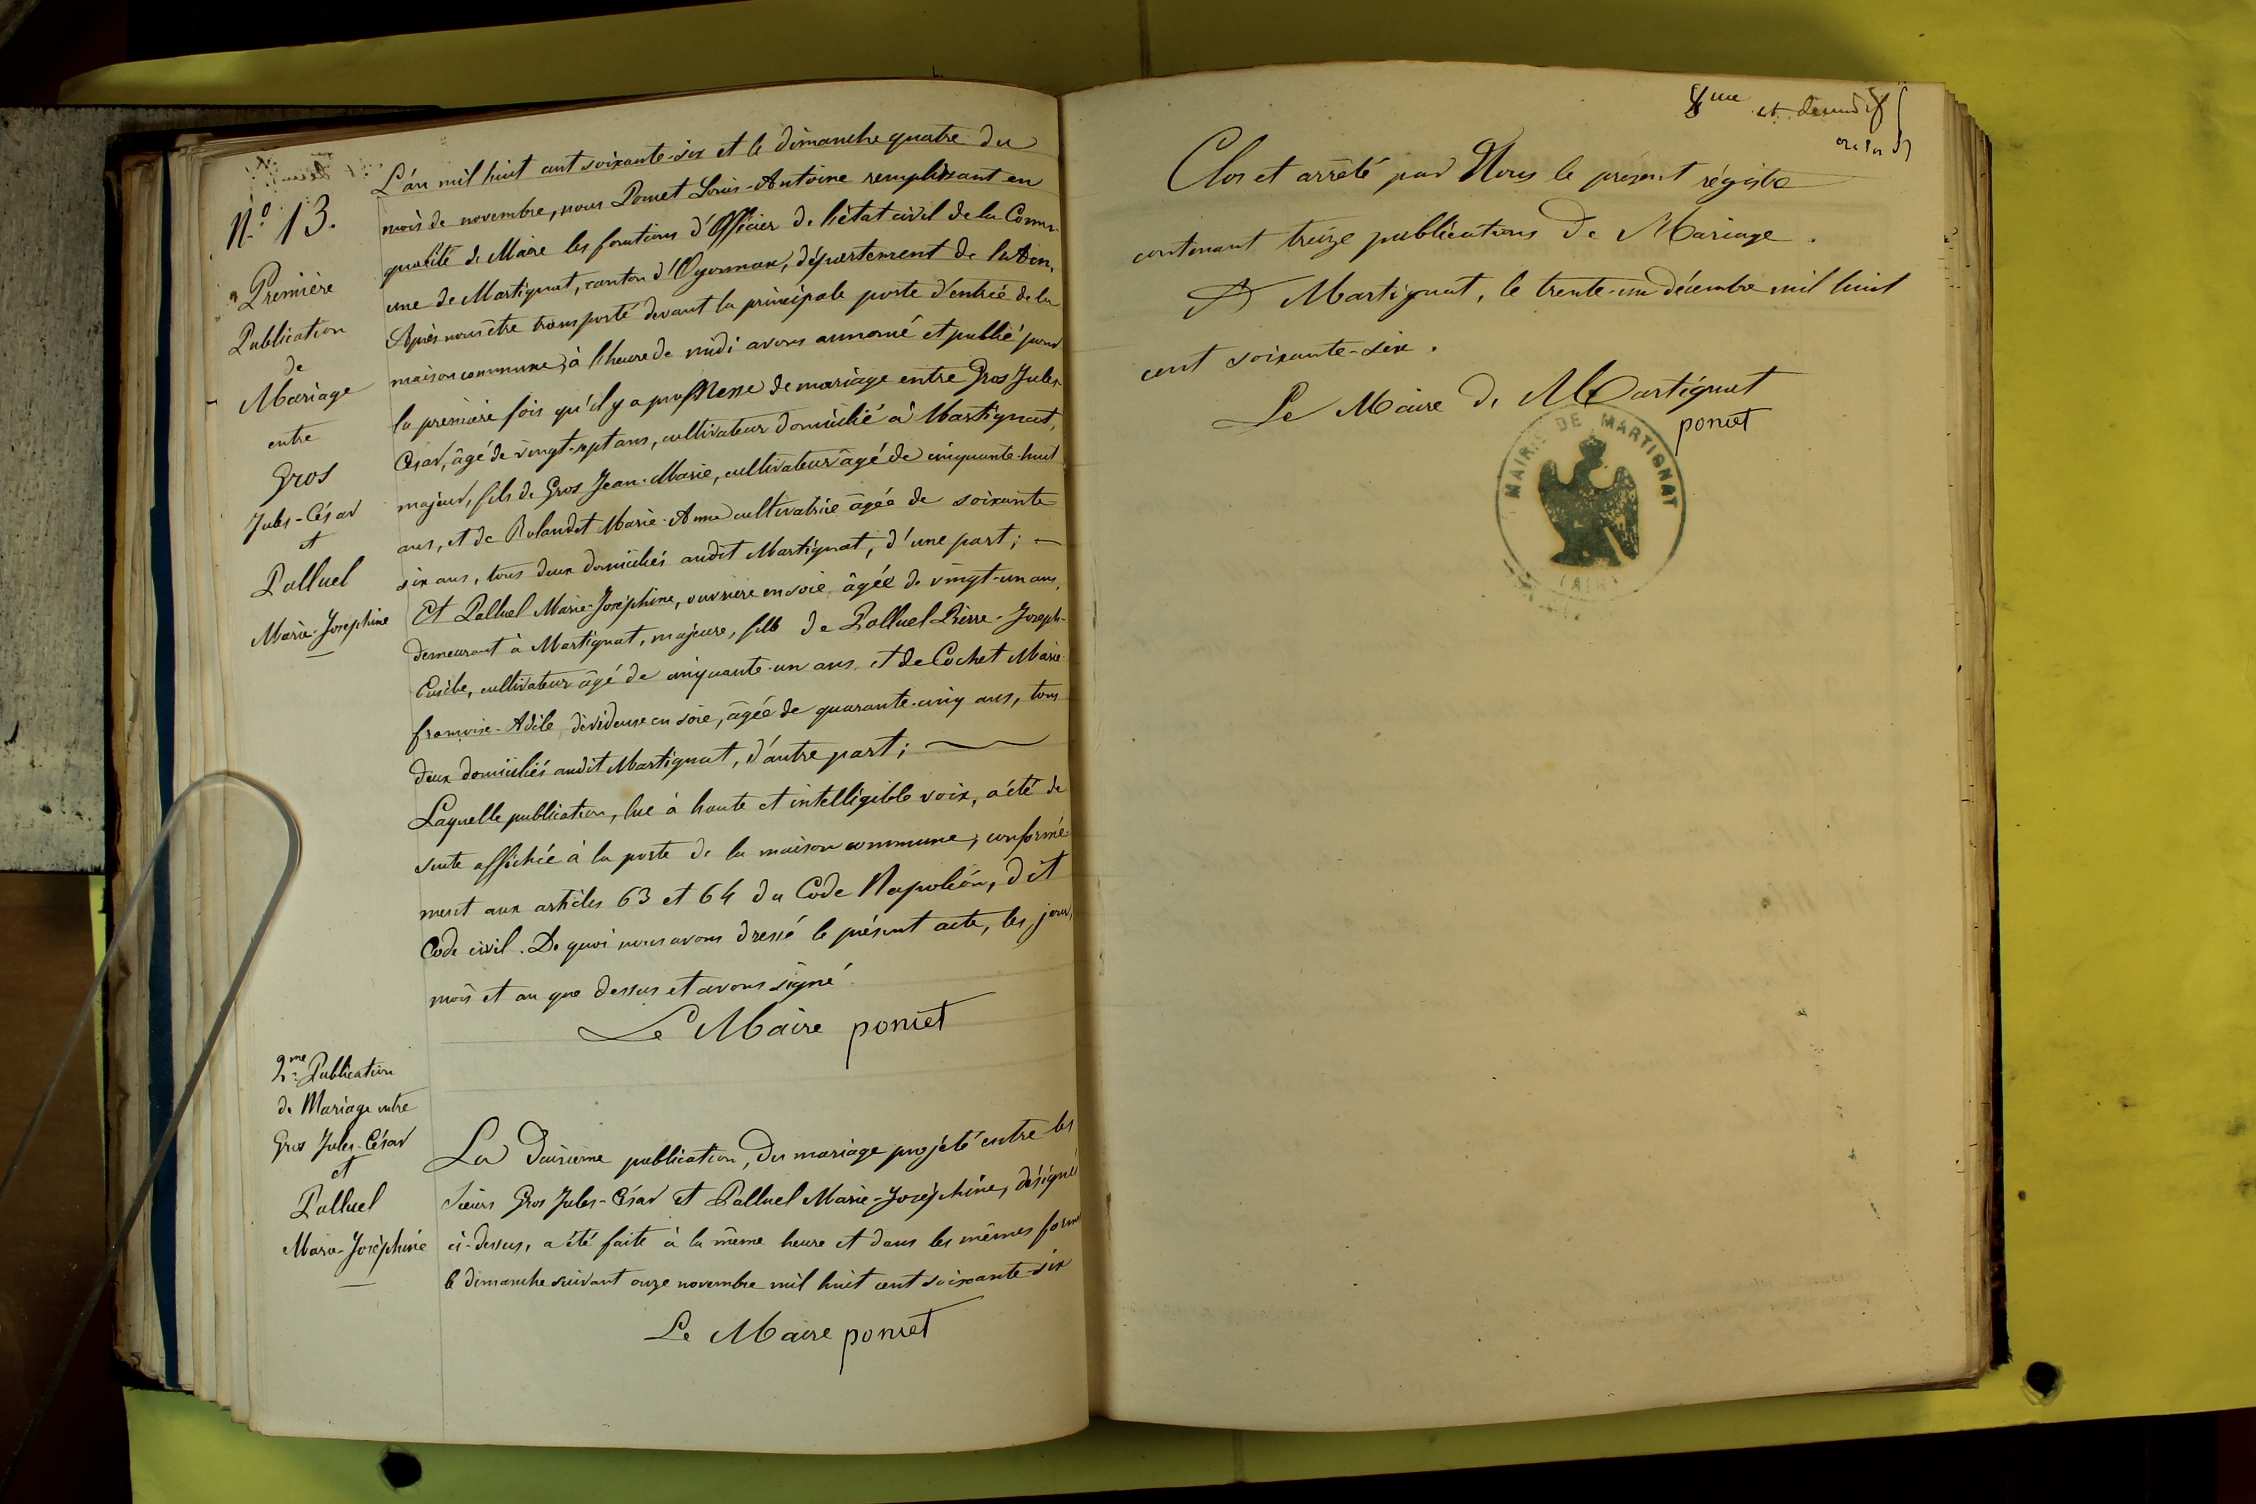 N.º 13.
Première
Publication
de
Mariage
entre
Gros
Jules-César
et
Palluel
Marie-Joséphine
L'an mil huit cent soixante-six et le dimanche quatre du
mois de novembre, nous Poncet Louis-Antoine remplissant en
qualité de Maire les fonctions d'Officier de l'état civil de la Comm-
une de Martignat, canton d'Oyonnax, département de l'Ain,
Après nous être transporté devant la principale porte d'entrée de la
maison commune, à l'heure de midi avons annoncé et publié pour
la première fois qu'il y a promesse de mariage entre Gros Jules-
César, âgé de vingt-sept ans, cultivateur domicilié à Martignat,
majeur, fils de Gros Jean-Marie, cultivateur âgé de cinquante-huit
ans, et de Rolandet Marie-Anne cultivatrice âgée de soixante
six ans, tous deux domiciliés audit Martignat, d'une part; —
Et Palluel Marie-Joséphine, ouvrière en soie âgée de vingt-un ans,
demeurant à Martignat, majeure, fille de Palluel Pierre-Joseph-
Eusèbe, cultivateur âgé de cinquante-un ans et de Cochet Marie
françoise-Adèle, dévideuse en soie, âgée de quarante-cinq ans, tous
deux domiciliés audit Martignat, d'autre part; —
Laquelle publication, lue à haute et intelligible voix, a été de
suite affichée à la porte de la maison commune, conformé-
ment aux articles 63 et 64 du Code Napoléon, dit
Code civil. De quoi nous avons dressé le présent acte, les jour,
mois et an que dessus et avons signé.
Le Maire poncet
2.me Publication
de Mariage entre
Gros Jules-César
et
Palluel
Marie-Joséphine
La deuxième publication, du mariage projeté entre les
sieurs Gros Jules-César et Palluel Marie-Joséphine, désignés
ci-dessus, a été faite à la même heure et dans les mêmes formes
le dimanche suivant onze novembre mil huit cent soixante-six
Le Maire poncet
8me et
Clos et arrêté par Nous le présent régistre
contenant treize publications de Mariage.
A Martignat, le trente-un décembre mil huit
cent soixante-six.
Le Maire de Martignat
poncet
MAIRIE DE MARTIGNAT
(AIN)